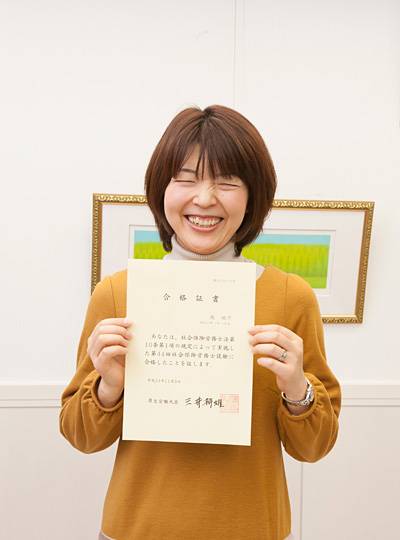 合格証書
あなたは、社会保険労務士法第
10条第1項の規定によって実施し
た第44回社会保険労務士試験に
合格したことを証します。
平成24年11月9日
厚生労働大臣 三井辨雄